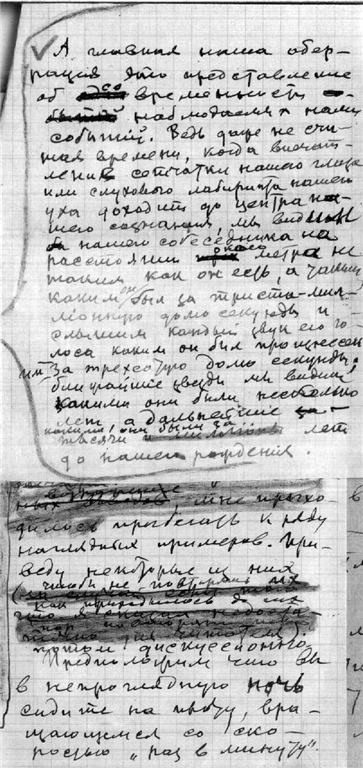 А главная наша абер-
рация это представление
об одновременности
наблюдаемых нами
событий. Ведь даже не счи-
тая времени, когда впечат-
ление сетчатки нашего глаза
или слухового лабиринта нашего
уха доходит до центра на-
шего сознания, мы видим
нашего собеседника на
расстоянии около метра не
таким как он есть а таким,
каким он был за триста-мил-
лионную долю секунды и
слышим каждый звук его го-
лоса каким он был произнесен
им за трехсотую долю секунды.
ближайшие звезды мы видим
какими они были несколько
лет, а дальнейшие
какими они были за
тысячи лет
до нашего рождения.
мне прихо-
дилось прибегать к ряду
наглядных примеров. При-
веду некоторые из них
чтобы не повторять их
потом дискуссионно.
Предположим что вы
в непроглядную ночь
сидите на кругу, вра-
щающемся со ско-
ростью „раз в минуту".